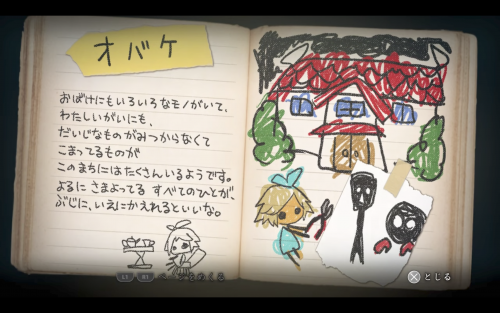 オバケ
おばけにもいろいろなモノがいて、
わたしいがいにも、
だいじなものがみつからなくて
こまってるものが
このまちにはたくさんいるようです。
よるに さまよってる すべてのひとが、
ぶじに、いえにかえれるといいな。
とじる